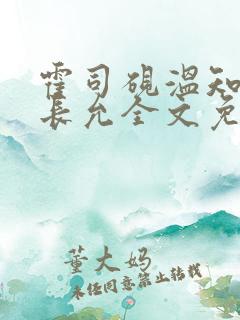 霍司砚温知
长允全文免
董大妈
未经同意禁止转载